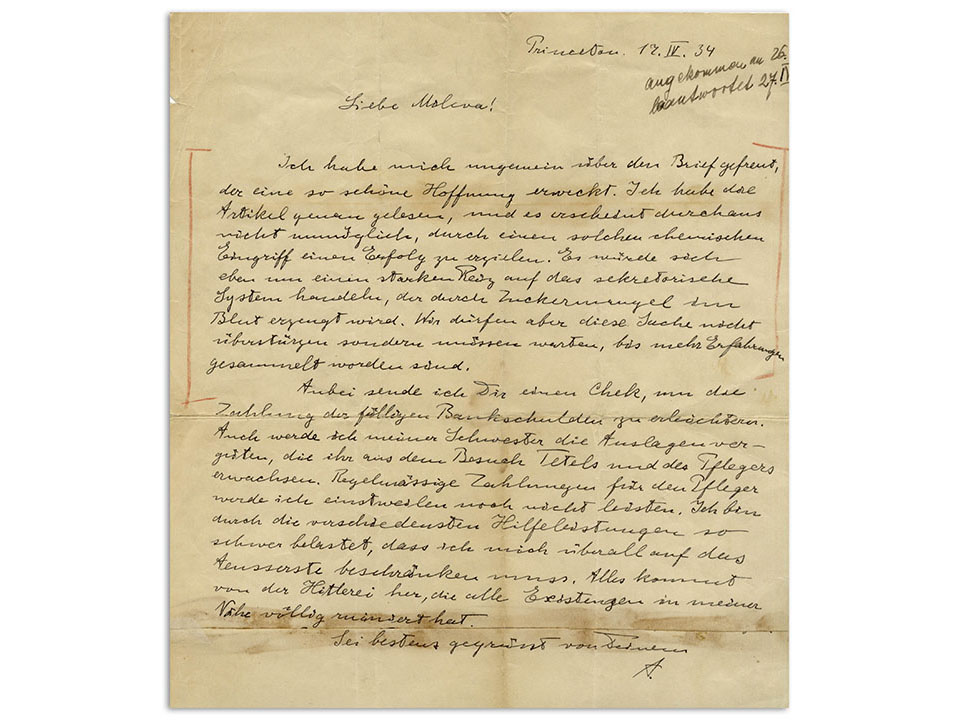 Princeton. 17.IV.34
angekommen am 26.
beantwortet 27.IV
Liebe Mileva!
Ich habe mich ungemein über den Brief gefreut,
der eine so schöne Hoffnung erweckt. Ich habe die
Artikel genau gelesen, und es erscheint durchaus
nicht unmöglich, durch einen solchen chemischen
Eingriff einen Erfolg zu erzielen. Es würde sich
eben um einen starken Reiz auf das sekretorische
System handeln, der durch Zuckermangel im
Blut erzeugt wird. Wir dürfen aber diese Sache nicht
überstürzen sondern müssen warten, bis mehr Erfahrungen
gesammelt worden sind.
Anbei sende ich Dir einen Chek, um die
Zahlung der fälligen Bankschulden zu erleichtern.
Auch werde ich meiner Schwester die Auslagen ver-
güten, die ihr aus dem Besuch Tetels und des Pflegers
erwachsen. Regelmässige Zahlungen für den Pfleger
werde ich einstweilen noch nicht leisten. Ich bin
durch die verschiedensten Hilfeleistungen so
schwer belastet, dass ich mich überall auf das
Aeusserste beschränken muss. Alles kommt
von der Hitlerei her, die alle Existenzen in meiner
Nähe völlig ruiniert hat.
Sei bestens gegrüsst von Deinem
A.